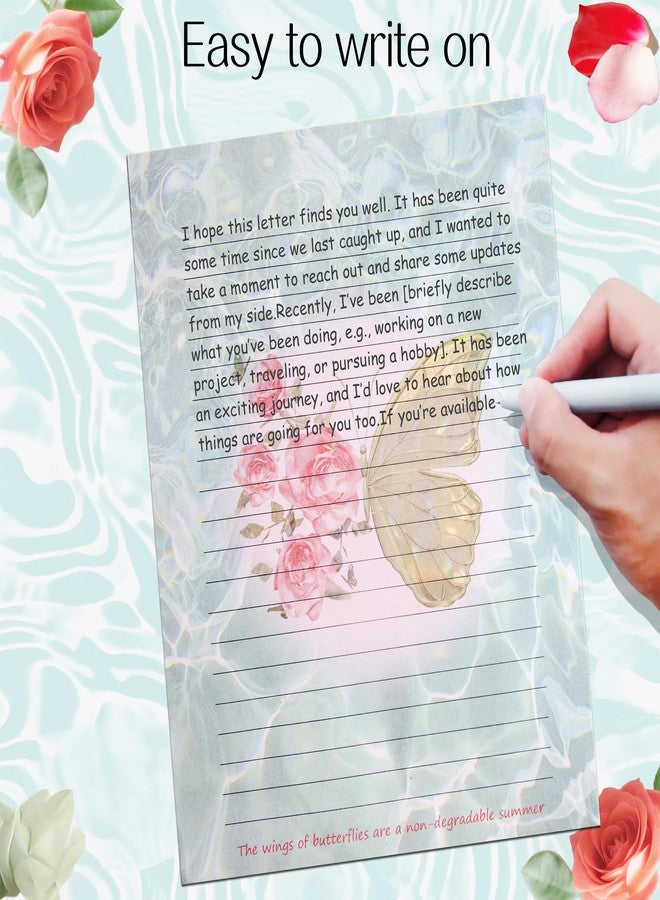 Easy to write on
I hope this letter finds you well. It has been quite
some time since we last caught up, and I wanted to
take a moment to reach out and share some updates
from my side.Recently, I've been [briefly describe
what you've been doing, e.g., working on a new
project, traveling, or pursuing a hobby]. It has been
an exciting journey, and I'd love to hear about how
things are going for you too.If you're available-
The wings of butterflies are a non-degradable summer